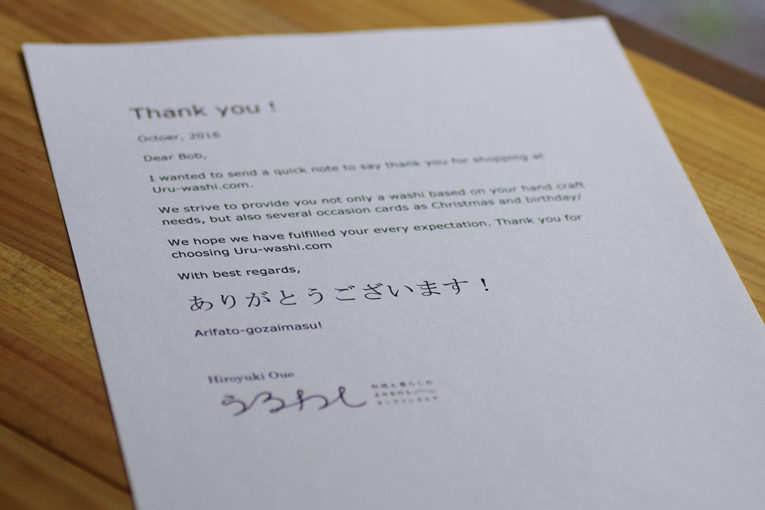 Thank you !
Octoer, 2016
Dear Bob,
I wanted to send a quick note to say thank you for shopping at
Uru-washi.com.
We strive to provide you not only a washi based on your hand craft
needs, but also several occasion cards as Christmas and birthday/
We hope we have fulfilled your every expectation. Thank you for
choosing Uru-washi.com
With best regards,
ありがとうございます！
Arifato-gozaimasu!
Hiroyuki Oue
うるわし
和紙と暮らしの
オンラインストア